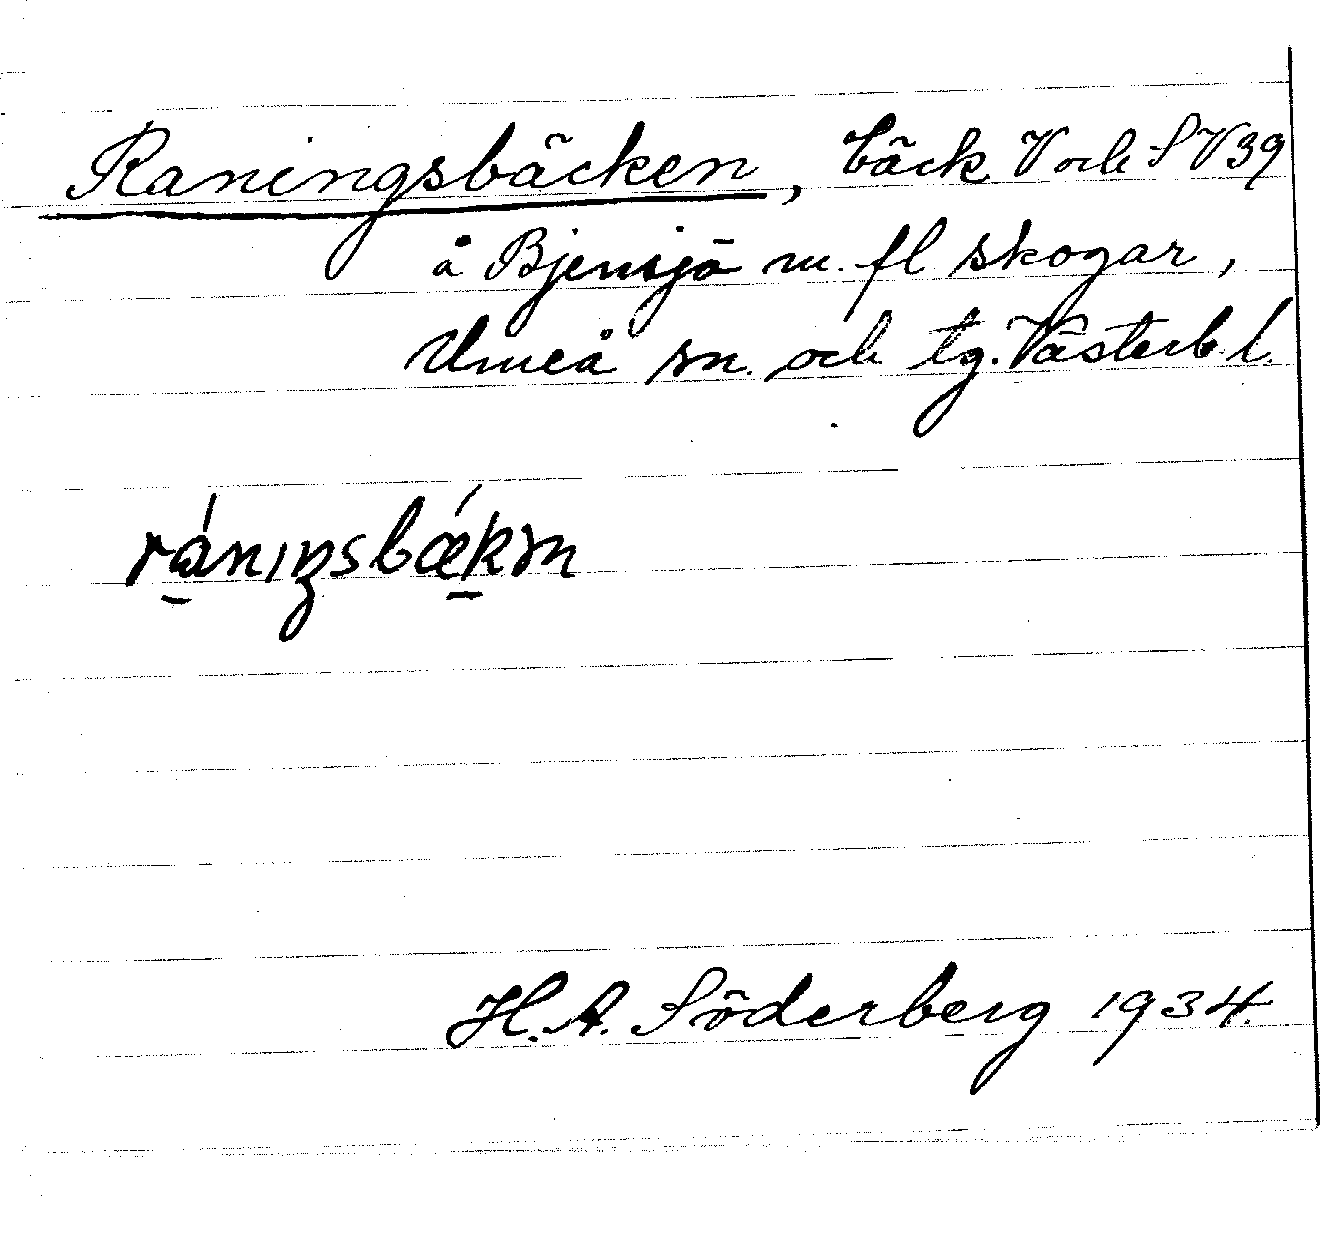 Raningsbäcken, bäck V och SV 39
å Bjensjö m. fl skogar,
Umeå sn. och tg. Västerb. l.
ráningsbǽkm
H. A. Söderberg 1934.